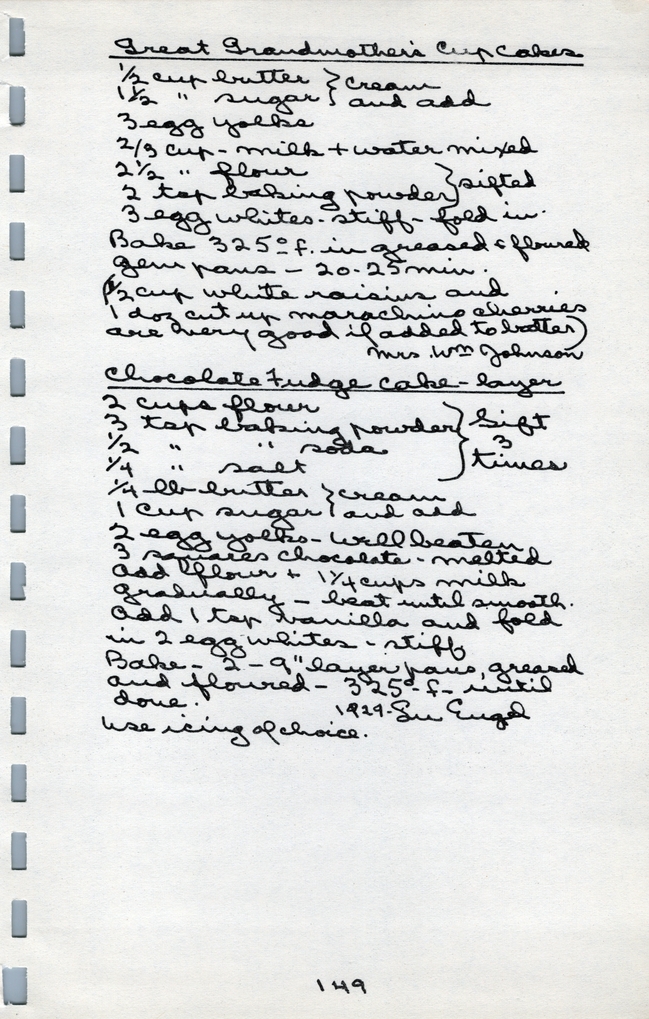 Great Grandmother's Cup Cakes
1/2 cup butter } cream
1 1/2 " sugar } and add
3 egg yolks
2/3 cup - milk + water mixed
2 1/2 " flour } sifted
2 tsp baking powder
3 egg whites - stiff - fold in.
Bake 325° f. in greased & floured
gem pans - 20-25 min.
(1/2 cup white raisins and
1 doz cut up marachino cherries
are very good if added to batter)
Mrs. Wm Johnson
Chocolate Fudge Cake - layer
2 cups flour } Sift
3 tsp baking powder } 3
1/2 " " soda } times
1/4 " salt
1/4 lb butter } cream
1 cup sugar } and add
2 egg yolks - well beaten
3 squares chocolate - melted
add flour + 1 1/4 cups milk
gradually - beat until smooth.
Add 1 tsp vanilla and fold
in 2 egg whites - stiff
Bake - 2 - 9" layer pans, greased
and floured - 325° f - until
done. 1929 - Su Engel
Use icing of choice.
149